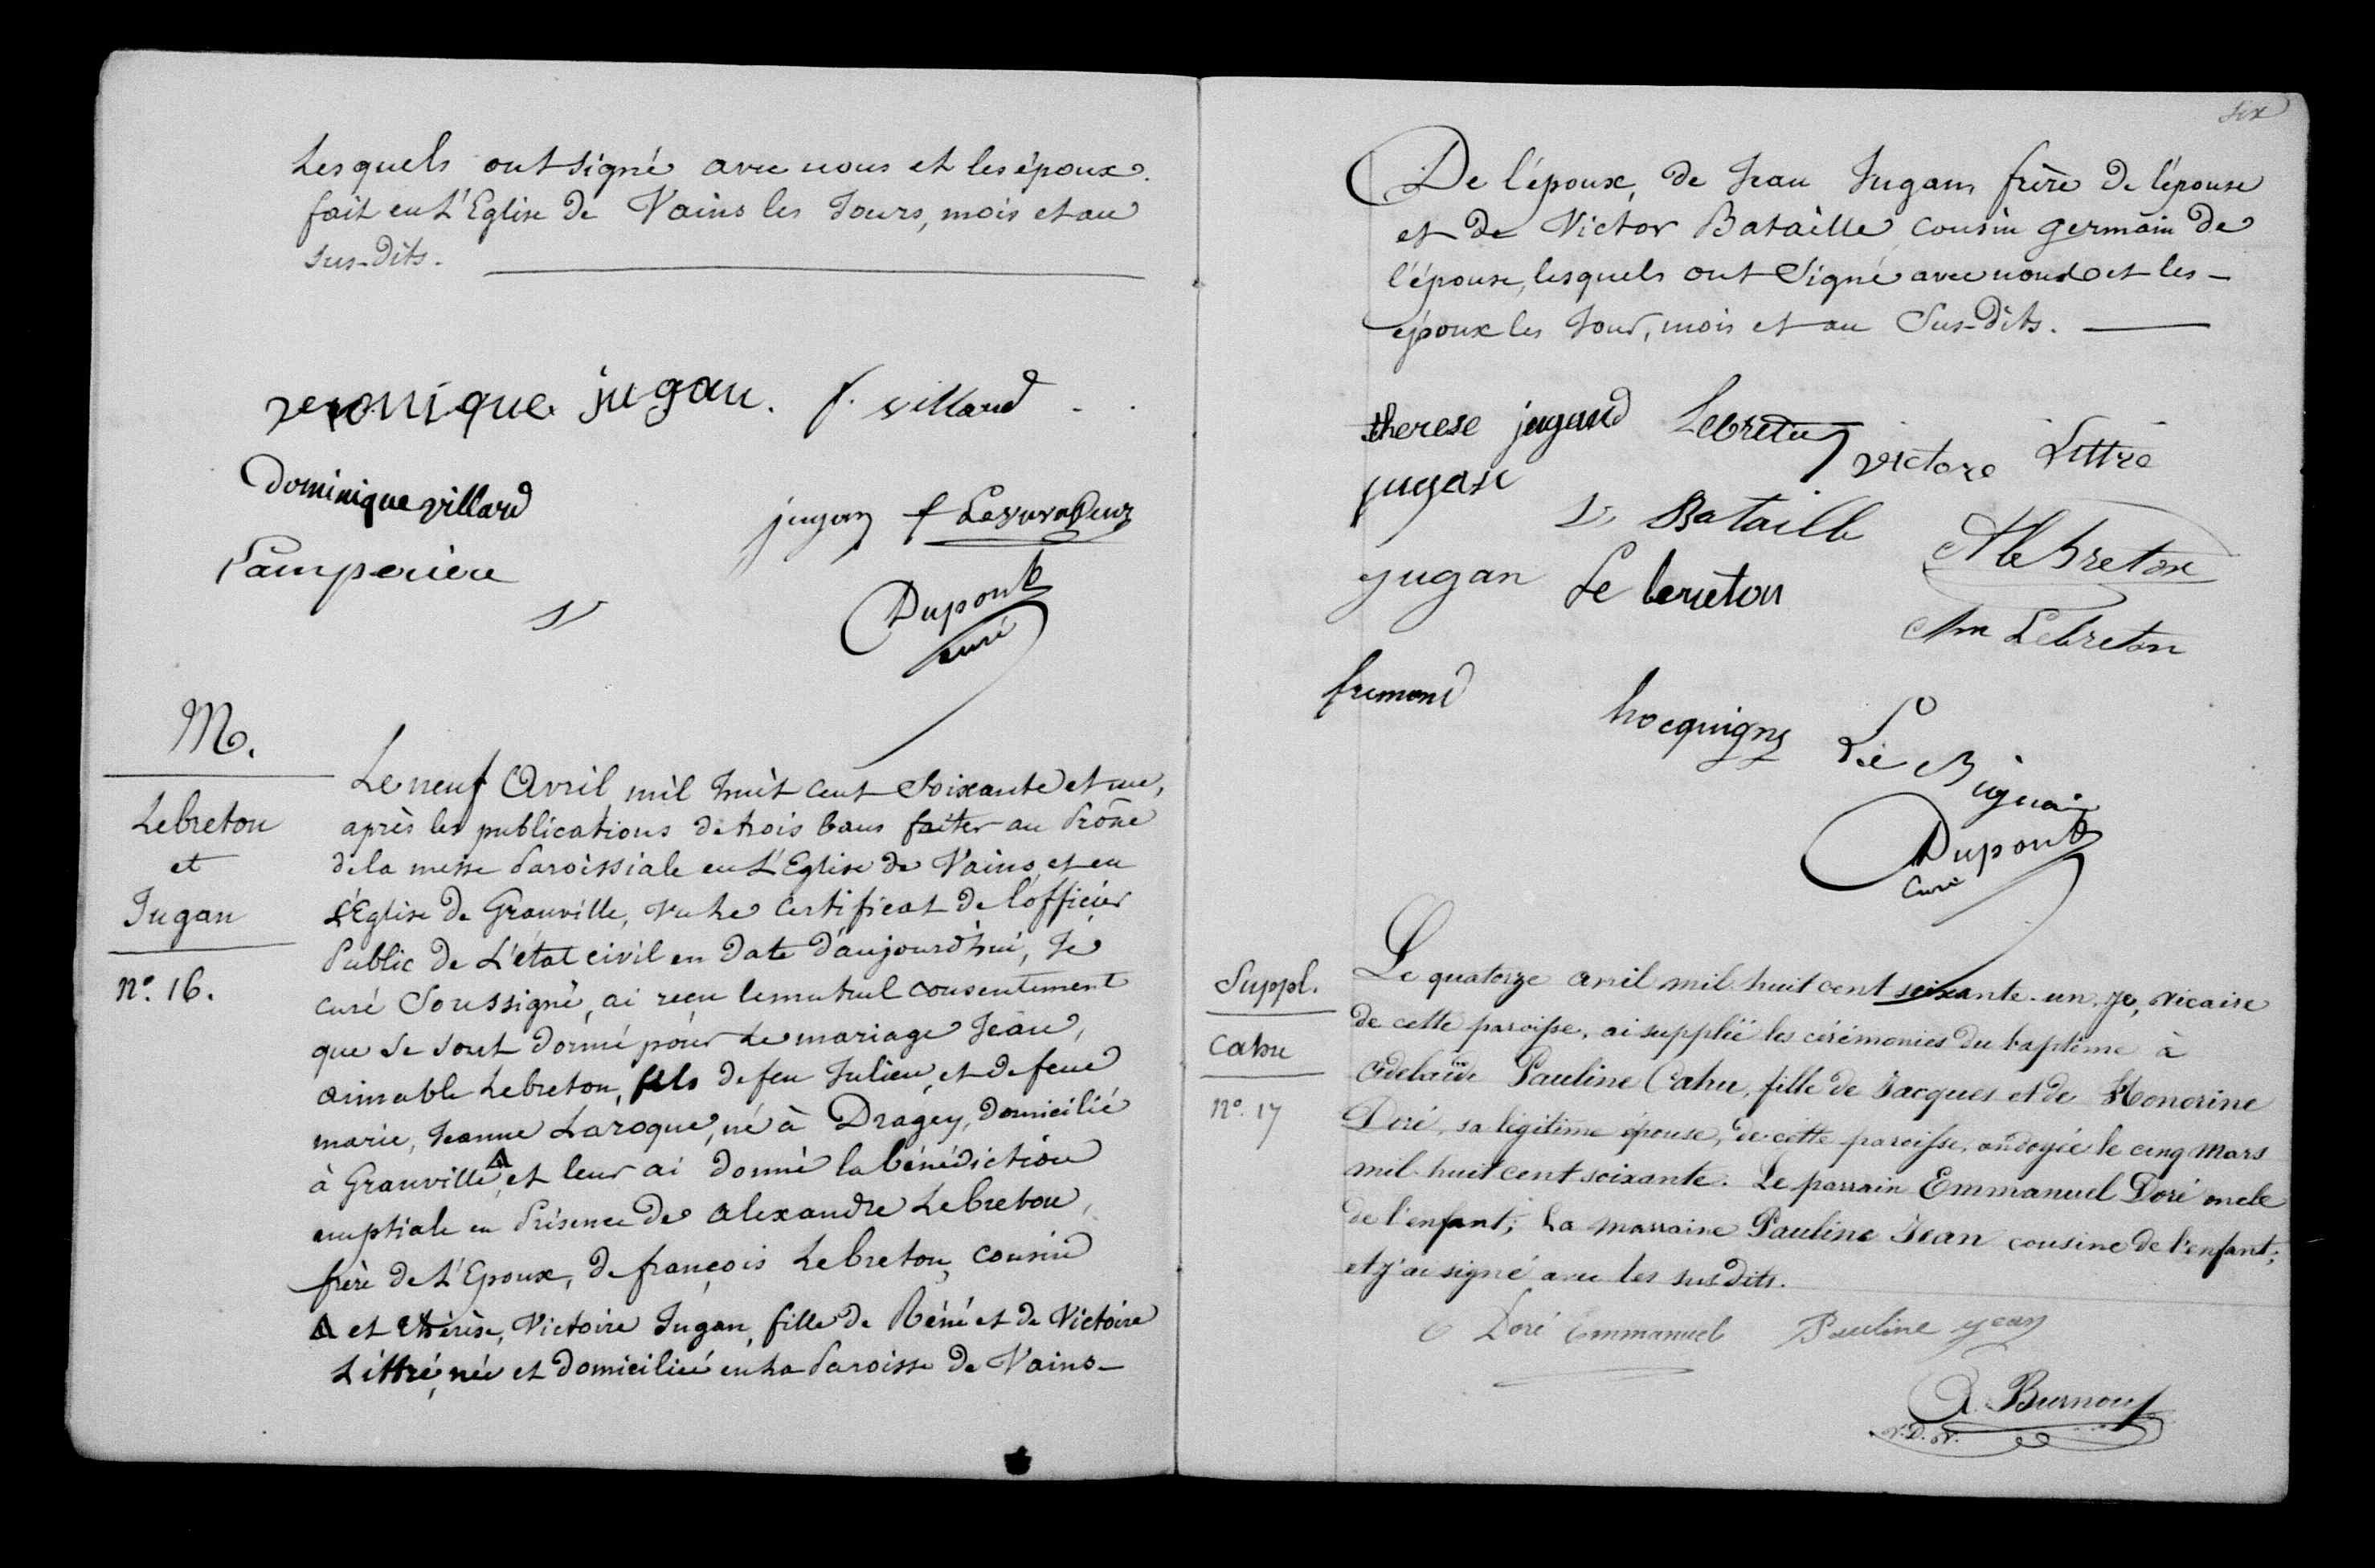 Lesquels ont signé avec nous et les époux.
fait en L'Eglise de Vains les Jours, mois et an
sus-dits.
veronique jugan. f. villard
Dominique villard
jugan f Levavasseur
Lamperiere
Dupont
curé
M.
Lebreton
et
Jugan
n°. 16.
Le neuf Avril mil huit cent Soixante et un,
après les publications de trois bans faites au Prône
de la messe Paroissiale en L'Eglise de Vains, et en
L'Eglise de Granville, vu Le Certificat de l'officier
Public de L'état civil en Date d'aujourd'hui, Je
curé Soussigné, ai reçu le mutuel consentement
que se sont donné pour Le mariage Jean,
aimable Lebreton, fils de feu Julien, et de feue
marie, Jeanne Laroque, né à Dragey, domicilié
à Granville, Δ et leur ai donné la bénédiction
nuptiale en Présence de alexandre Lebreton,
frère de L'Epoux, de françois Lebreton, cousin
Δ et thérèse, Victoire Jugan, fille de Réné et de Victoire
Littré, née et domiciliée en La Paroisse de Vains-
six
De l'époux, de Jean Jugan, frère de l'épouse
et de Victor Bataille cousin germain de
l'épouse, lesquels ont signé avec nous et les-
époux les Jour, mois et an Sus-dits.
therese jugand Lebreton victore Littre
jugan
V Bataille
A le breton
jugan Le breton
Am Lebreton
fremond
hocquigny
Le Bignai
Dupont
Curé
Suppl.
Cahu
n°. 17
Le quatorze avril mil huit cent soixante-un, je, vicaire
de cette paroisse, ai suppléé les cérémonies du baptême à
Adelaïde Pauline Cahu, fille de Jacques et de Honorine
Doré, sa légitime épouse, de cette paroisse, ondoyée le cinq Mars
mil huit cent soixante. Le parrain Emmanuel Doré oncle
de l'enfant; La marraine Pauline Jean cousine de l'enfant;
et j'ai signé avec les susdits.
Doré Emmanuel Pauline jean
A. Burnouf
V.D.V.